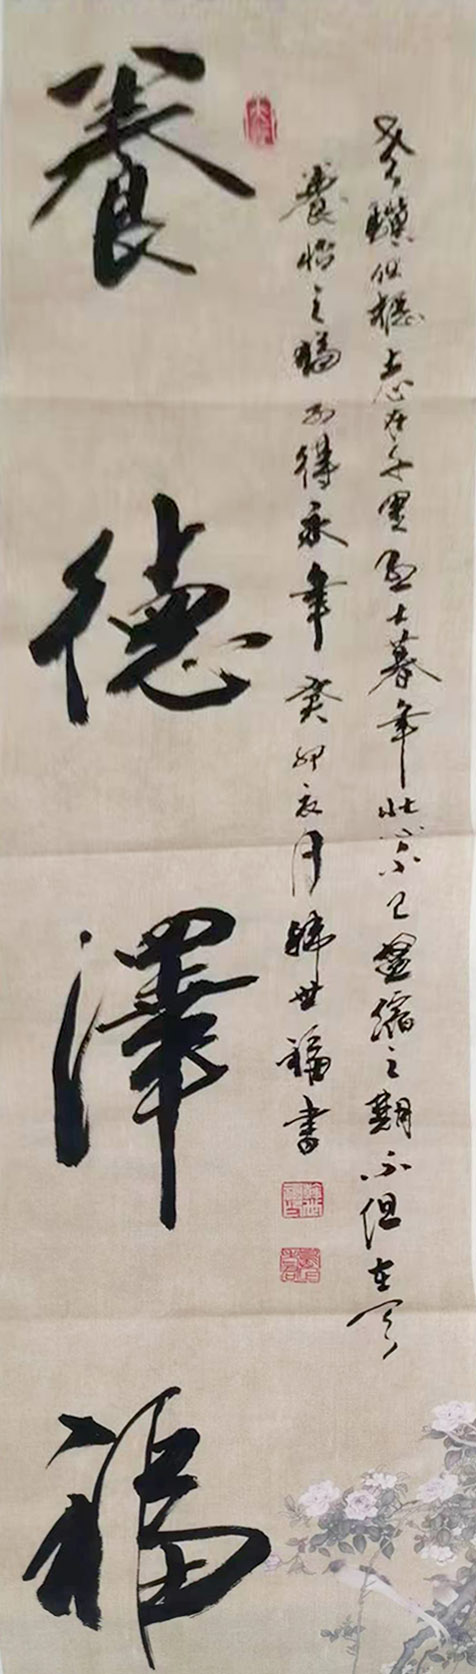 養德澤福
老驥伏櫪志在千里烈士暮年壯心不已盈縮之期不但在天
養怡之福可得永年癸卯夏月韓世福書